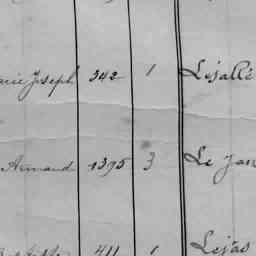 Joseph 342 1 Lesallé
Armand 1395 3 Le Jan
411 1 Lejas